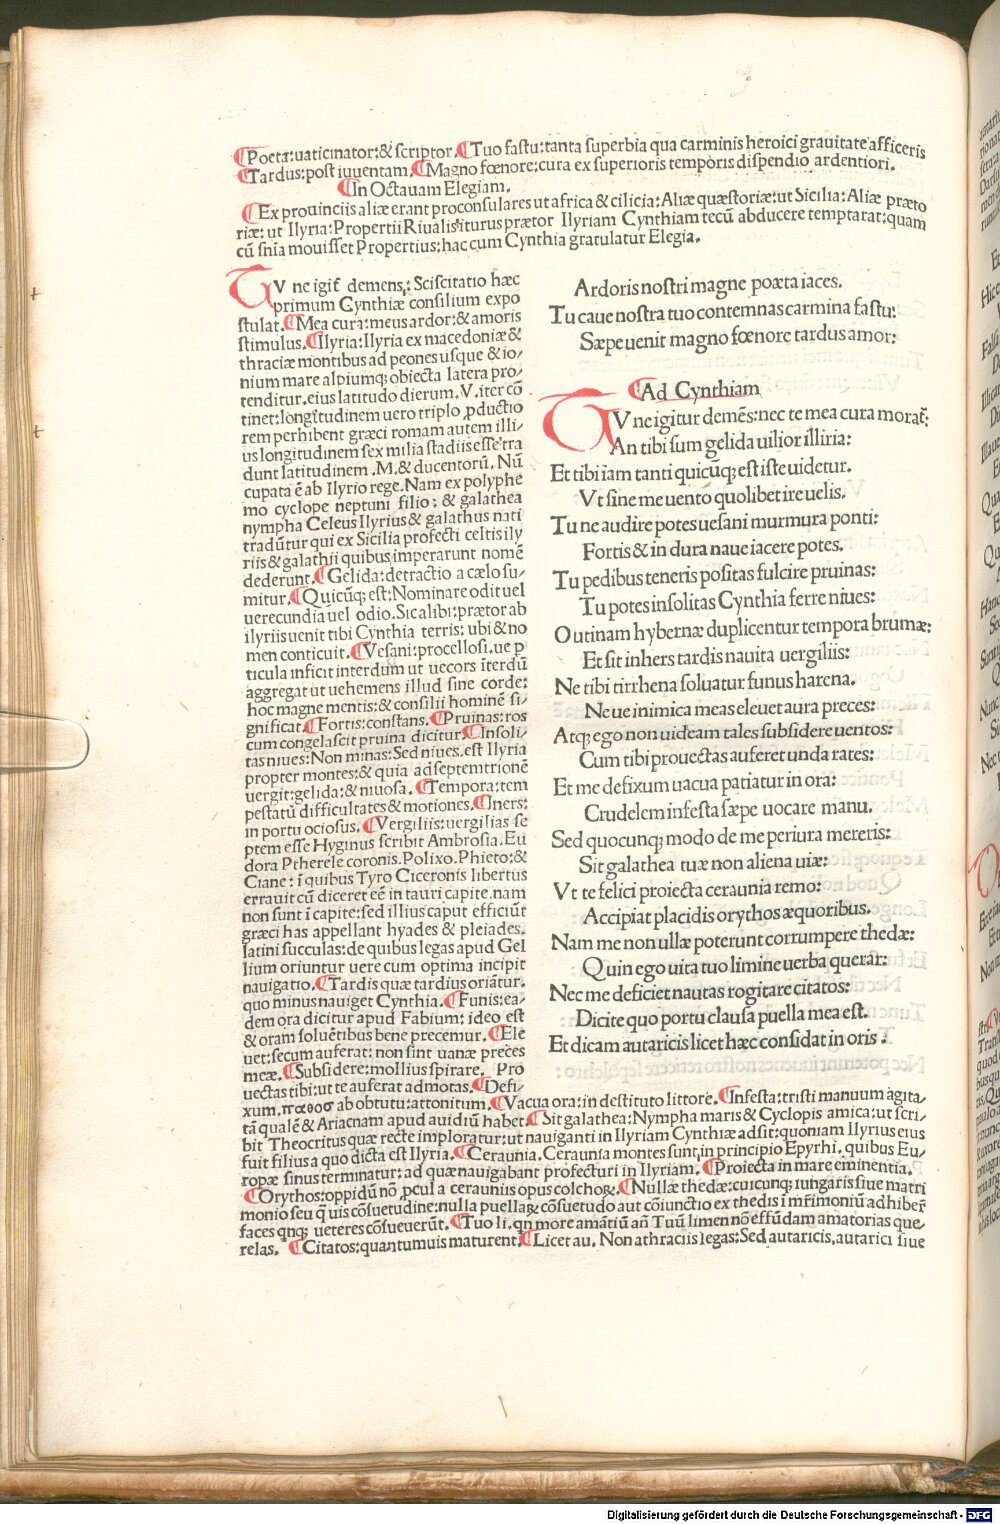 ¶Poeta:uaticinator:& scriptor.¶Tuo fastu:tanta superbia qua carminis heroici grauitate afficeris
¶Tardus:post iuuentam.¶Magno fœnore:cura ex superioris temporis dispendio ardentiori.
¶In Octauam Elegiam.
¶Ex prouinciis aliæ erant proconsulares ut africa & cilicia:Aliæ quæstoriæ:ut Sicilia:Aliæ præto
riæ: ut Ilyria:Propertii Riualis iturus prætor Ilyriam Cynthiam tecũ abducere temptarat:quam
cũ snia mouisset Propertius:hac cum Cynthia gratulatur Elegia.
TV ne igit̃ demens: Sciscitatio hæc
primum Cynthiæ consilium expo
stulat.¶Mea cura:meus ardor:& amoris
stimulus.¶Ilyria:Ilyria ex macedoniæ &
thraciæ montibus ad peones usque & io/
nium mare alpiumq; obiecta latera pro/
tenditur.eius latitudo dierum.V.iter cõ
tinet:longitudinem uero triplo ꝓductio
rem perhibent græci romam autem illi/
us longitudinem sex milia stadiis esse tra
dunt latitudinem .M.& ducentorũ. Nũ
cupata ẽ ab Ilyrio rege.Nam ex polyphe
mo cyclope neptuni filio: & galathea
nympha Celeus Ilyrius & galathus nati
tradũtur qui ex Sicilia profecti celtis ily
riis & galathii quibus imperarunt nomẽ
dederunt.¶Gelida:detractio a cælo su/
mitur.¶Quicũq; est:Nominare odit uel
uerecundia uel odio.Si calibi:prætor ab
ilyriis uenit tibi Cynthia terris: ubi & no
men conticuit.¶Vesani:procellosi.ue p
ticula inficit interdum ut uecors ĩterdũ
aggregat ut uehemens illud sine corde:
hoc magne mentis:& consilii hominẽ si/
gnificat.¶Fortis:constans.¶Pruinas:ros
cum congelascit pruina dicitur.¶Insoli/
tas niues:Non minas:Sed niues.est Ilyria
propter montes:& quia ad septemtrionẽ
uergit:gelida:& niuosa.¶Tempora:tem
pestatũ difficultates & motiones.¶Iners:
in portu ociosus.¶Vergiliis:uergilias se
ptem esse Hyginus scribit Ambrosia.Eu
dora Ptherele coronis.Polixo.Phieto:&
Ciane: ĩ quibus Tyro Ciceronis libertus
errauit cũ diceret eẽ in tauri capite.nam
non sunt ĩ capite:sed illius caput efficiũt
græci has appellant hyades & pleiades.
latini succulas:de quibus legas apud Gel
lium oriuntur uere cum optima incipit
nauigatio.¶Tardis quæ tardius oriãtur.
quo minus nauiget Cynthia.¶Funis:ea/
dem ora dicitur apud Fabium: ideo est
& oram soluẽtibus bene precemur.¶Ele
uet:secum auferat: non sint uanæ preces
meæ.¶Subsidere:mollius spirare. Pro
uectas tibi:ut te auferat admotas.¶Defi/
xum. ab obtutu:attonitum.¶Vacua ora:in destituto littore.¶Infesta:tristi manuum agita/
tã qualẽ & Ariacnam apud auidiũ habet.¶Sit galathea:Nympha maris & Cyclopis amica:ut scri/
bit Theocritus quæ recte imploratur:ut nauiganti in Ilyriam Cynthiæ adsit:quoniam Ilyrius eius
fuit filius a quo dicta est Ilyria.¶Ceraunia.Ceraunia montes sunt,in principio Epyrhi. quibus Eu/
ropæ sinus terminatur: ad quæ nauigabant profecturi in Ilyriam.¶Proiecta in mare eminentia.
¶Orythos:oppidũ nõ ꝓcul a cerauniis opus colchoꝝ.¶Nullæ thedæ:cuicunq; iungaris siue matri
monio seu q̃uis cõsuetudine:nulla puellaꝝ cõsuetudo aut cõiunctio ex thedis ĩ mr̃imoniũ adhiber̃
faces qnq; ueteres cõsueuerũt.¶Tuo li. qn more amãtiũ añ Tuũ limen nõ effũdam amatorias que/
relas. ¶Citatos:quantumuis maturent.¶Licet au. Non athraciis legas:Sed autaricis.autarici siue
Ardoris nostri magne poæta iaces.
Tu caue nostra tuo contemnas carmina fastu:
Sæpe uenit magno fœnore tardus amor:
¶Ad Cynthiam
TV ne igitur demẽs:nec te mea cura morat̃:
An tibi sum gelida uilior illiria:
Et tibi iam tanti quicũq; est iste uidetur.
Vt sine me uento quolibet ire uelis.
Tu ne audire potes uesani murmura ponti:
Fortis & in dura naue iacere potes.
Tu pedibus teneris positas fulcire pruinas:
Tu potes insolitas Cynthia ferre niues:
O utinam hybernæ duplicentur tempora brumæ:
Et sit inhers tardis nauita uergiliis:
Ne tibi tirrhena soluatur funus harena.
Neue inimica meas eleuet aura preces:
Atq; ego non uideam tales subsidere uentos:
Cum tibi prouectas auferet unda rates:
Et me defixum uacua patiatur in ora:
Crudelem infesta sæpe uocare manu.
Sed quocunq; modo de me periura mereris:
Sit galathea tuæ non aliena uiæ:
Vt te felici proiecta ceraunia remo:
Accipiat placidis orythos æquoribus.
Nam me non ullæ poterunt corrumpere thedæ:
Quin ego uita tuo limine uerba querar:
Nec me deficiet nautas rogitare citatos:
Dicite quo portu clausa puella mea est.
Et dicam autaricis licet hæc considat in oris:
Digitalisierung gefördert durch die Deutsche Forschungsgemeinschaft - DFG